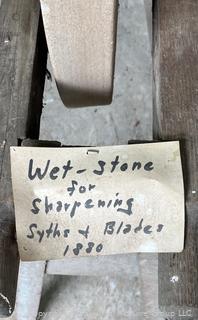 Wet-Stone
for
Sharpening
Syths & Blades
1880